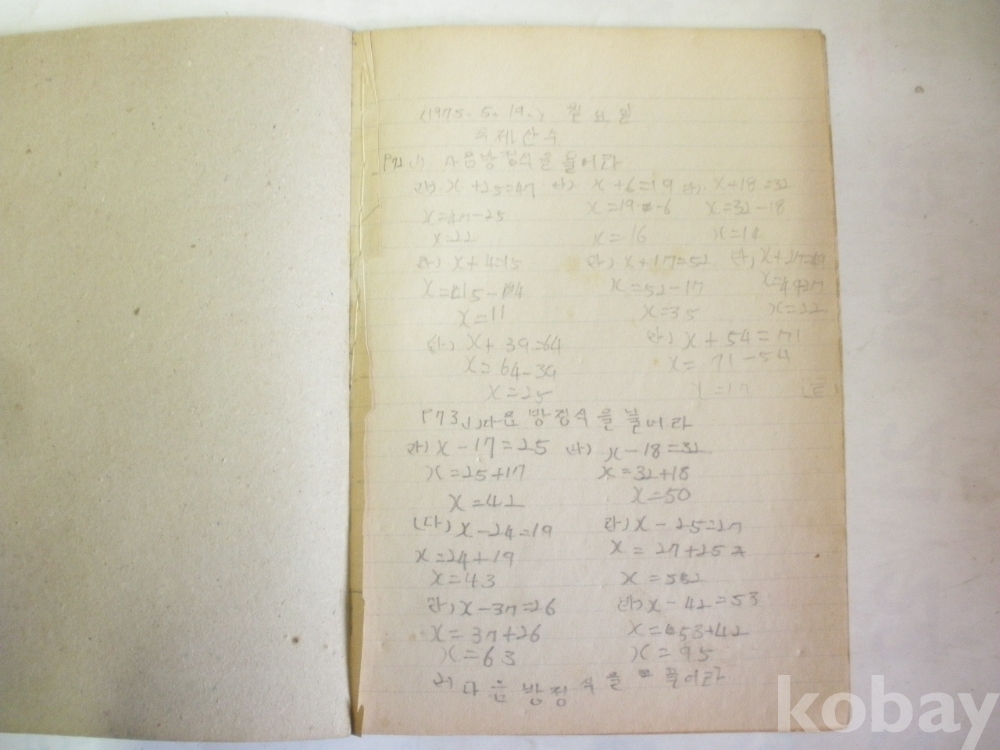 (1975. 5. 19.) 월요일
숙제산수
P72 (1) 다음방정식을 풀어라
가) x+25=47 나) x+6=19 다) x+18=32
x=47-25 x=19-6 x=32-18
x=22 x=16 x=14
라) x+4=15 마) x+17=52 바) x+27=49
x=15-4 x=52-17 x=49-27
x=11 x=35 x=22
사) x+39=64 아) x+54=71
x=64-39 x=71-54
x=25 x=17
P73 (1) 다음 방정식을 풀어라
가) x-17=25 나) x-18=32
x=25+17 x=32+18
x=42 x=50
(다) x-24=19 라) x-25=27
x=24+19 x=27+25
x=43 x=52
마) x-37=26 바) x-42=53
x=37+26 x=53+42
x=63 x=95
다음 방정식을 풀어라
kobay